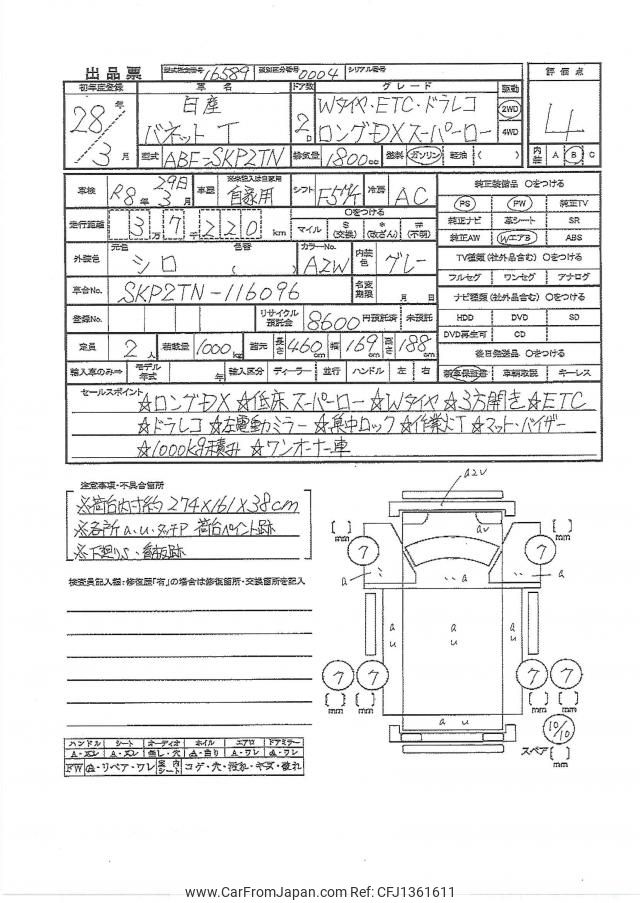 出品票 型式認定番号 16589 類別区分番号 0004 シリアル番号
評価点
初年度登録 車名 ドア数 グレード 駆動
28年 日産 Wタイヤ・ETC・ドラレコ 2WD
3月 バネットT 2D ロングDXスーパーロー 4WD
4
型式 ABF-SKP2TN 排気量 1800cc 燃料 ガソリン・軽油( )
内装 A B C
車検 R8年 29日 3月 車歴 ※未記入は自家用 自家用 シフト F5 冷房 AC
走行距離 3万7千220km ○をつける マイル $(交換) *(改ざん) #(不明)
外装色 元色 シロ 色替 ( ) カラーNo. A2W 内装色 グレー
車台No. SKP2TN-116096 名変期限 月 日
登録No. リサイクル預託金 8600円預託済 未預託
定員 2人 積載量 1000kg 諸元 長さ 460cm 幅 169cm 高さ 188cm
輸入車のみ⇒ モデル年式 年 輸入区分 ディーラー 並行 ハンドル 左 右
純正装備品 ○をつける
PS PW 純正TV
純正ナビ 革シート SR
純正AW WエアB ABS
TV種類(社外品含む) ○をつける
フルセグ ワンセグ アナログ
ナビ種類(社外品含む) ○をつける
HDD DVD SD
DVD再生可 CD
後日発送品 ○をつける
新車保証書 車輌取説 キーレス
セールスポイント ☆ロングDX ☆低床スーパーロー ☆Wタイヤ ☆3方開き ☆ETC
☆ドラレコ ☆左電動ミラー ☆集中ロック ☆作業灯 ☆マット・バイザー
☆1000kg積み ☆ワンオーナー車
注意事項・不具合箇所
※荷台内寸約 274×161×38cm
※各所a.u.タッチP 荷台ペイント跡
※下廻りS・看板跡
検査員記入欄:修復歴「有」の場合は修復箇所・交換箇所を記入
A2V
av
[ ] mm [ ] mm
ワ ワ
a a a
a u a u a u
ワ ワ ワ ワ
[ ] mm [ ] mm [ ] mm [ ] mm
a u
10/10
スペア [ ] mm
ハンドル シート オーディオ ホイル エアロ ドアミラー
A・スレ A・スレ 無し・穴 A・曲り A・ワレ A・ワレ
FW A・リペア・ワレ 室内シート コゲ・穴・汚れ・キズ・破れ
www.CarFromJapan.com Ref: CFJ1361611